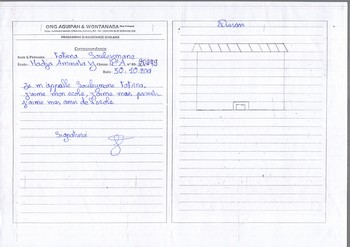 ONG AGUIPAH & WONTANASA
PROGRAMME D'ASSISTANCE SCOLAIRE
Correspondance
Nom & Prénoms: Fatima Souleymane
Ecole: Hadja Aminata Classe:
Date: 30.10.
Je m'appelle Souleymane Fatima,
j'aime mon ecole, j'aime mes parents
j'aime mes amis de l'ecole
Signature
Dessin